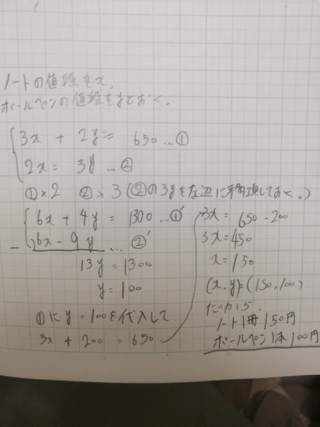 ノートの値段をx,
ボールペンの値段をyとおく。
3x + 2y = 650 … ①
2x = 3y … ②
①×2 ②×3 (②の3yを左辺に移項しておく。)
6x + 4y = 1300 … ①'
- 6x - 9y … ②'
13y = 1300
y = 100
①に y = 100を代入して
3x + 200 = 650
3x = 650 - 200
3x = 450
x = 150
(x, y) = (150, 100)
だから
ノート1冊 150円
ボールペン1本 100円